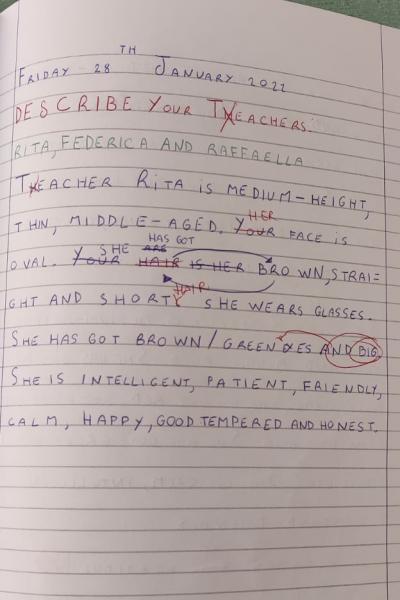 FRIDAY 28TH JANUARY 2022
DESCRIBE YOUR TEACHERS.
RITA, FEDERICA AND RAFFAELLA
TEACHER RITA IS MEDIUM-HEIGHT,
THIN, MIDDLE-AGED. YOUR HER FACE IS
OVAL. YOUR SHE ARE HAS GOT HAIR IS HER BROWN, STRAI=
GHT AND SHORT HAIR. SHE WEARS GLASSES.
SHE HAS GOT BROWN/GREEN EYES AND BIG.
SHE IS INTELLIGENT, PATIENT, FRIENDLY,
CALM, HAPPY, GOOD TEMPERED AND HONEST.